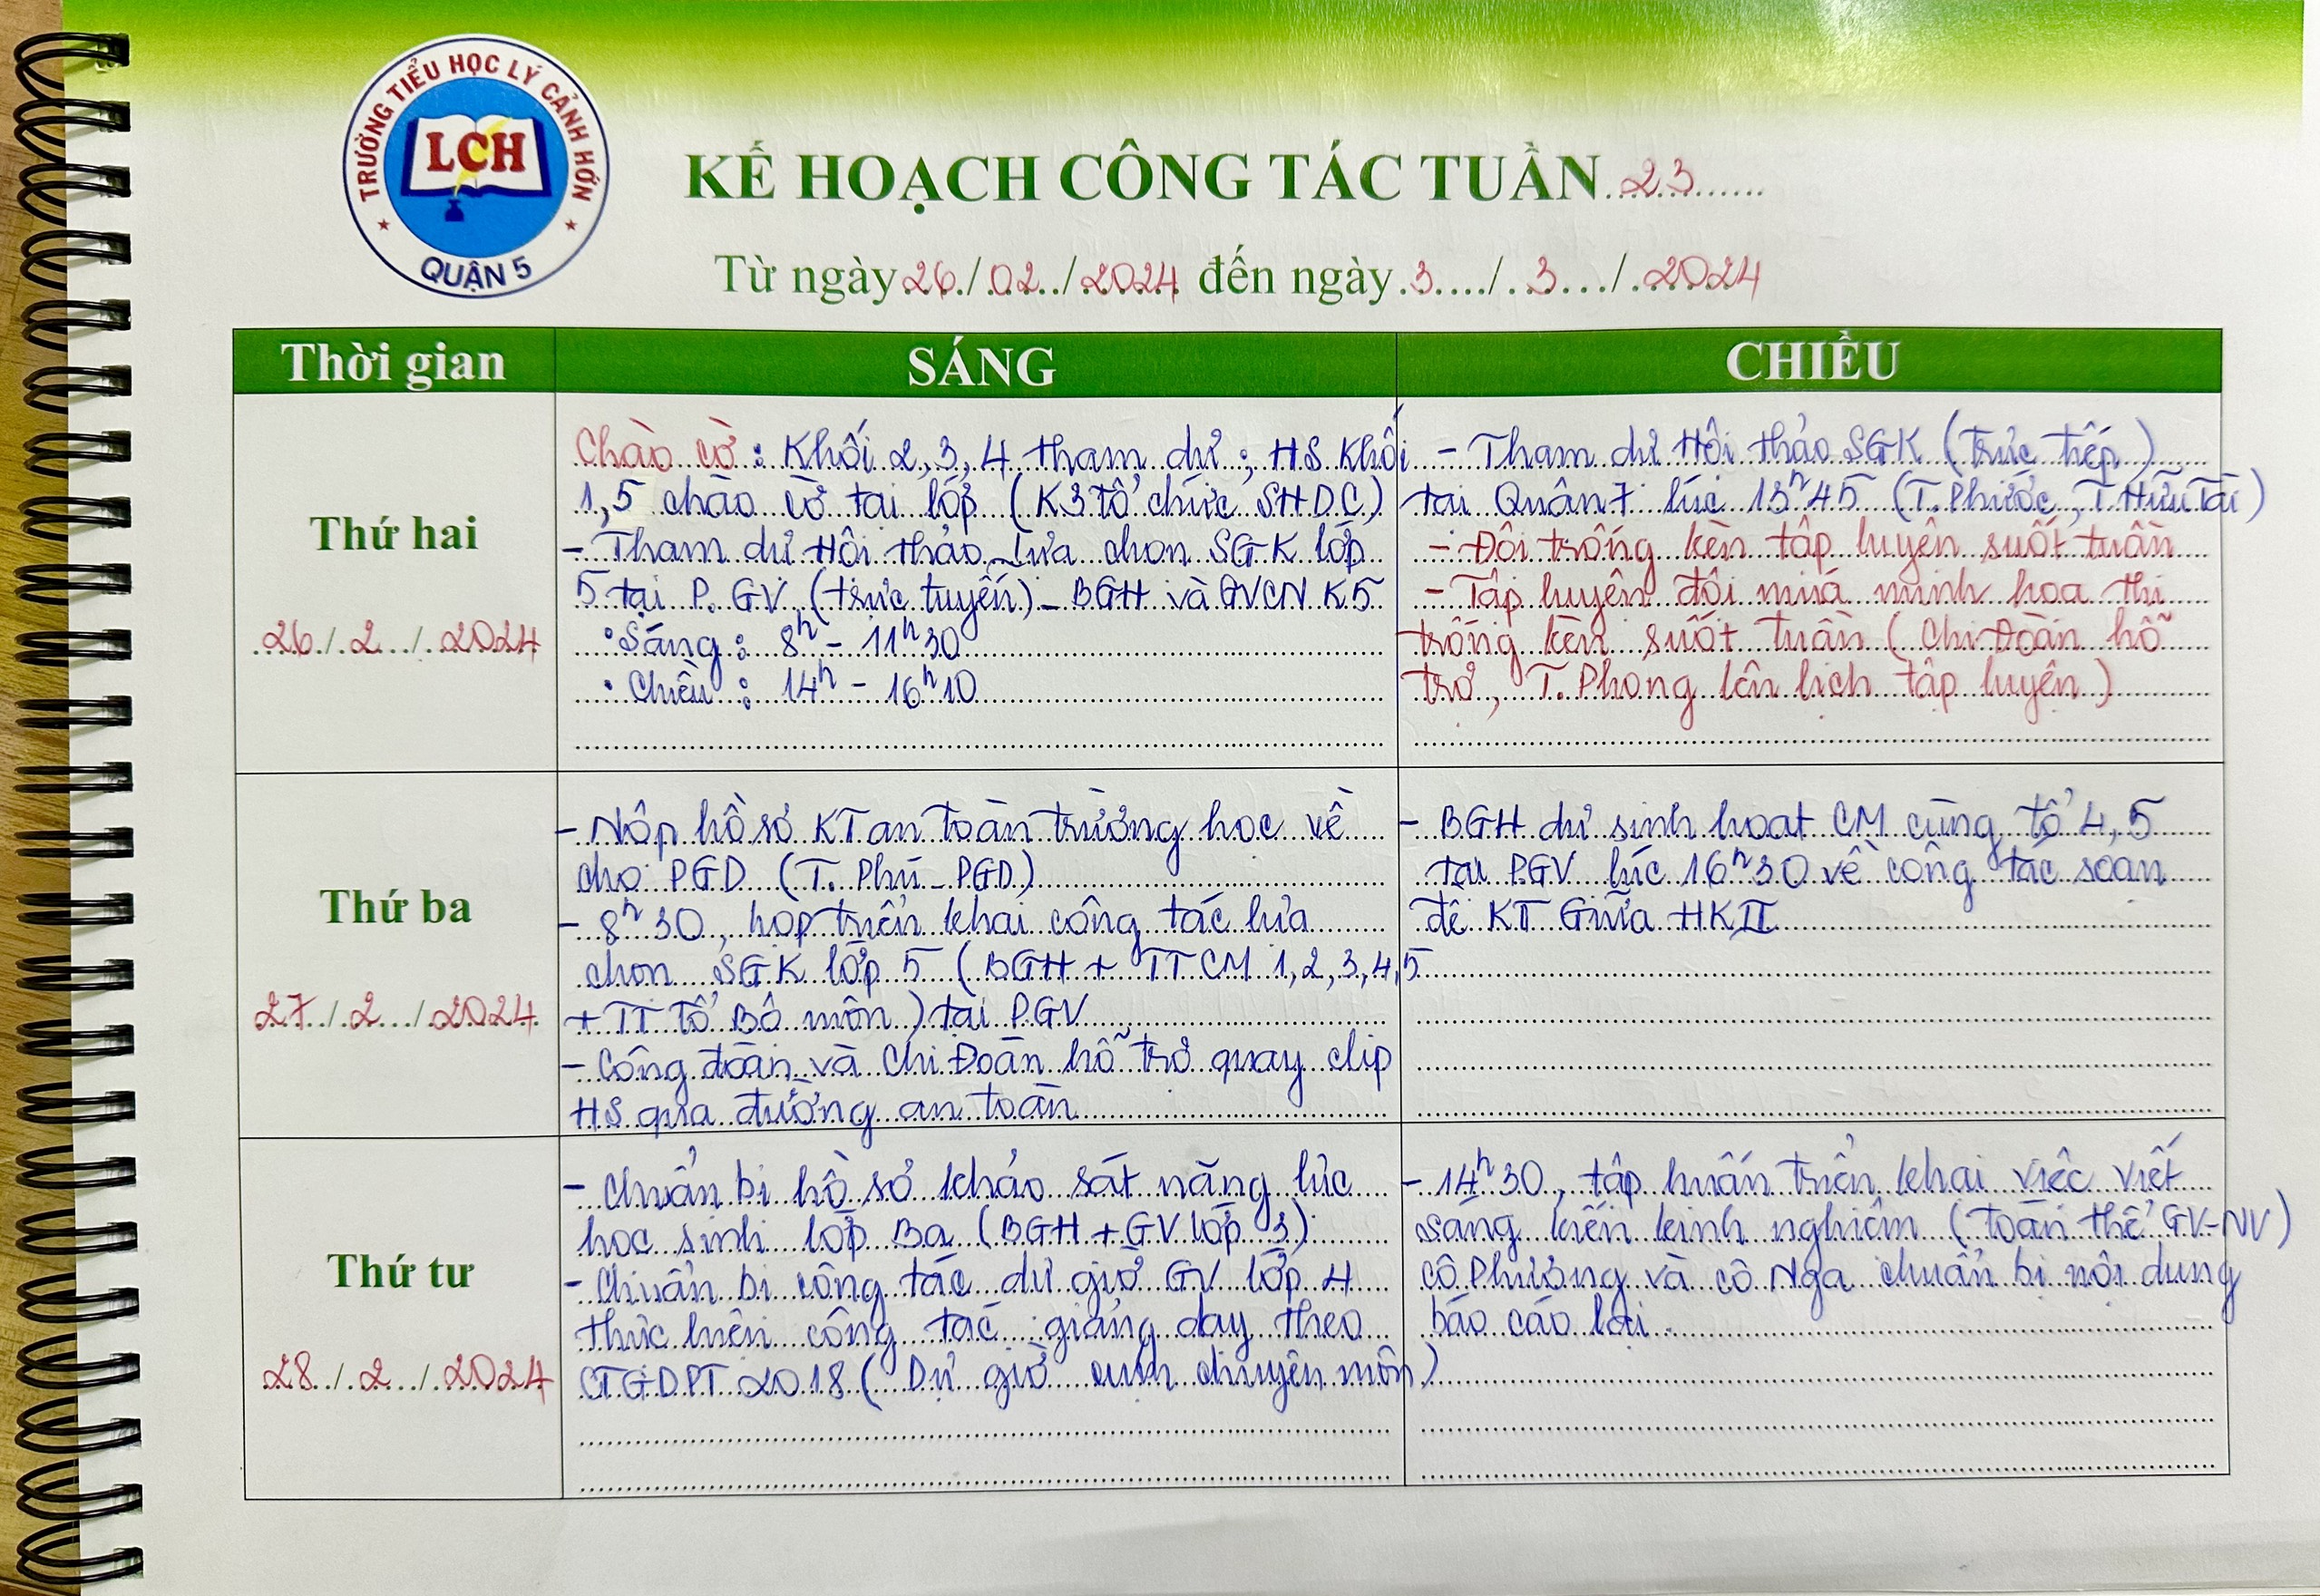 TRƯỜNG TIỂU HỌC LÝ CẢNH HỚN
LCH
QUẬN 5
KẾ HOẠCH CÔNG TÁC TUẦN 23
Từ ngày 26/02/2024 đến ngày 3/3/2024
Thời gian
SÁNG
CHIỀU
Thứ hai
26/2/2024
Chào cờ: Khối 2, 3, 4 tham dự; HS khối
1, 5 chào cờ tại lớp (K3 tổ chức SHDC)
- Tham dự Hội thảo lựa chọn SGK lớp
5 tại P.GV (trực tuyến) - BGH và GVCN K5
• Sáng: 8h - 11h30
• Chiều: 14h - 16h10
- Tham dự Hội thảo SGK (trực tiếp)
tại Quận 7 lúc 13h45 (T.Phước, T.Hữu Tài)
- Đội trống kèn tập luyện suốt tuần
- Tập luyện đội múa minh họa thi
trống kèn suốt tuần (Chi Đoàn hỗ
trợ, T.Phong lên lịch tập luyện)
Thứ ba
27/2/2024
- Nộp hồ sơ KT an toàn trường học về
cho PGD (T. Phú - PGD)
- 8h30, họp triển khai công tác lựa
chọn SGK lớp 5 (BGH + TTCM 1, 2, 3, 4, 5
+ TT tổ Bộ môn) tại P.GV
- Công đoàn và Chi Đoàn hỗ trợ quay clip
HS qua đường an toàn
- BGH dự sinh hoạt CM cùng tổ 4, 5
tại P.GV lúc 16h30 về công tác soạn
đề KT Giữa HKII
Thứ tư
28/2/2024
- Chuẩn bị hồ sơ khảo sát năng lực
học sinh lớp Ba (BGH + GV lớp 3)
- Chuẩn bị công tác dự giờ GV lớp 4
thực hiện công tác giảng dạy theo
CTGDPT 2018 (Dự giờ cụm chuyên môn)
- 14h30, tập huấn triển khai việc viết
sáng kiến kinh nghiệm (toàn thể GV-NV)
cô Phương và cô Nga chuẩn bị nội dung
báo cáo lại.